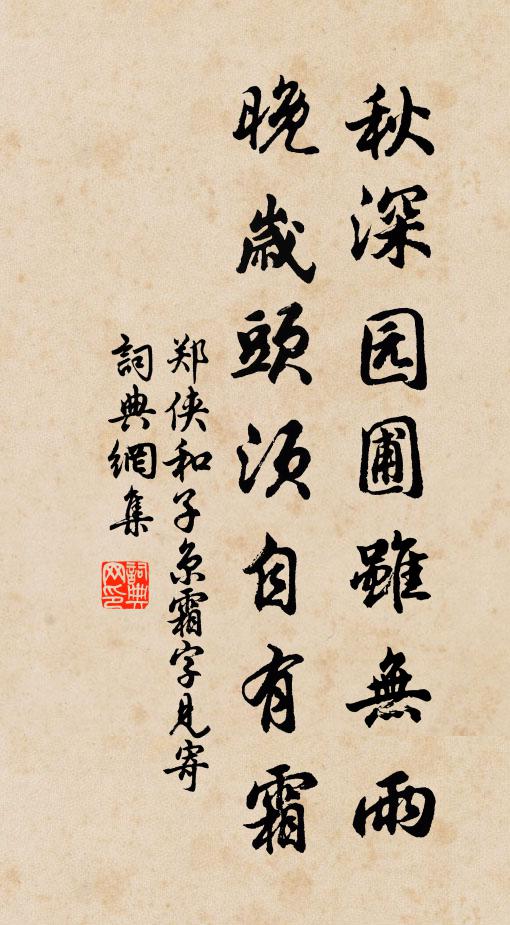 秋深园圃雖無雨
晚歲頭须自有霜
郑侠和子京霜字見寄
詞典網集
詞典网印